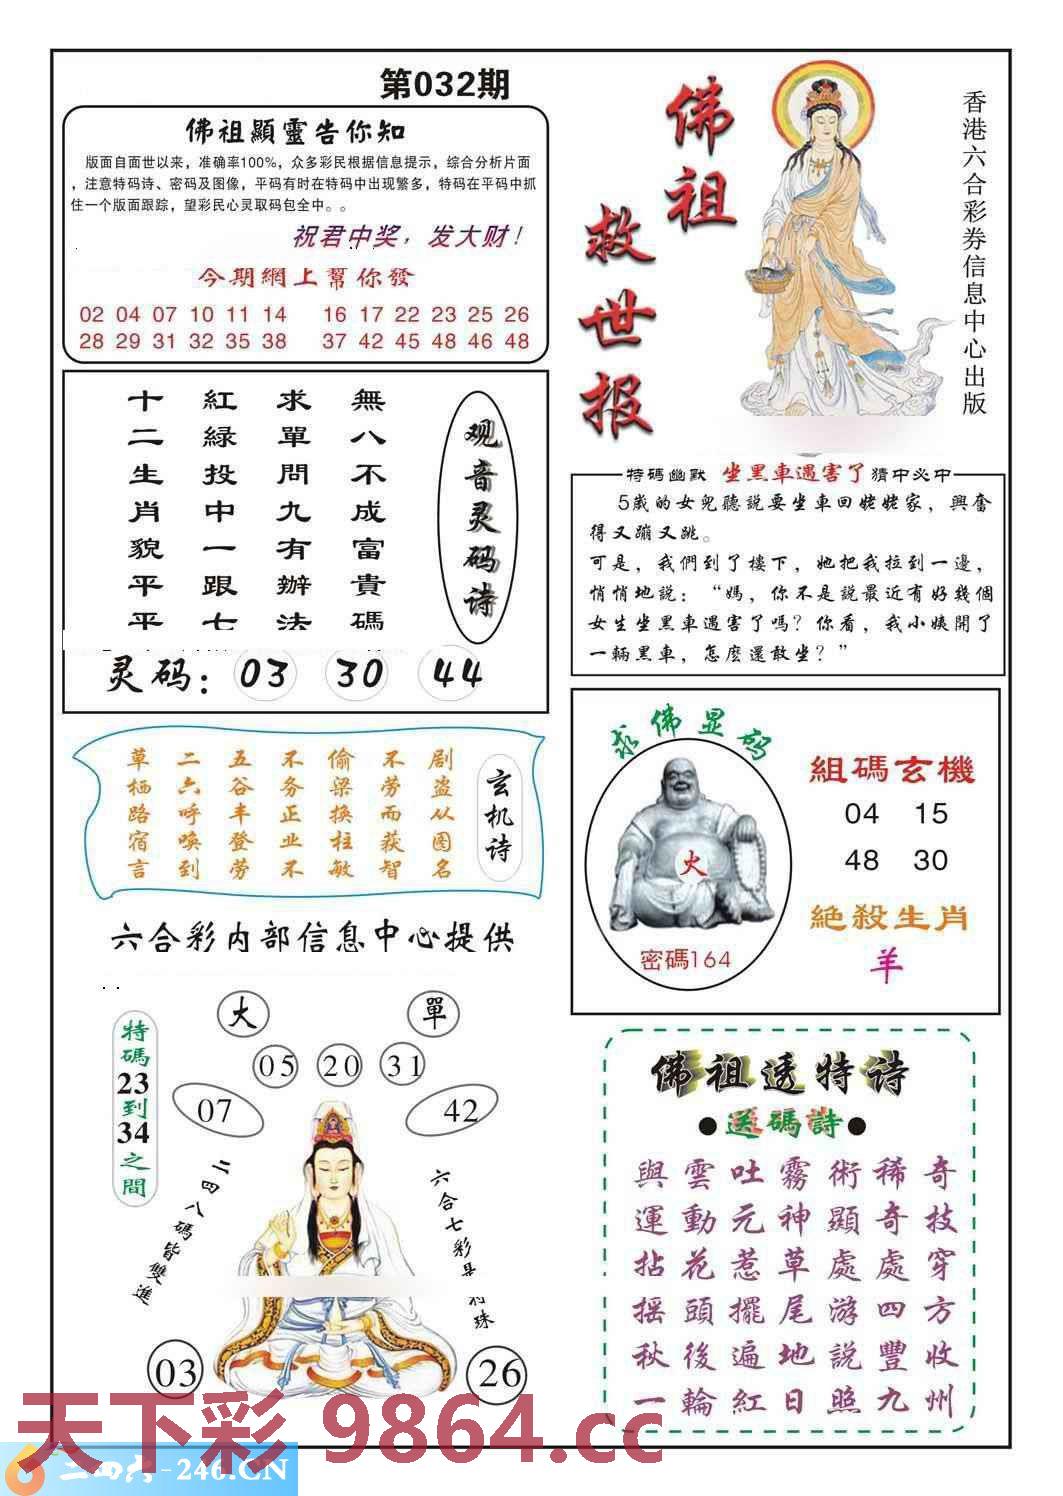 第032期
佛祖顯靈告你知
版面自面世以来，准确率100%，众多彩民根据信息提示，综合分析片面
，注意特码诗、密码及图像，平码有时在特码中出现繁多，特码在平码中抓
住一个版面跟踪，望彩民心灵取码包全中。。
祝君中奖，发大财！
今期網上幫你發
02 04 07 10 11 14 16 17 22 23 25 26
28 29 31 32 35 38 37 42 45 48 46 48
佛祖
救世报
香港六合彩券信息中心出版
观音灵码诗
無八不成富貴碼
求單問九有辦法
紅綠投中一跟七
十二生肖貌平平
灵码：03 30 44
特碼幽默 坐黑車遇害了 猜中必中
5歲的女兒聽説要坐車回姥姥家，興奮
得又蹦又跳。
可是，我們到了樓下，她把我拉到一邊，
悄悄地説：“媽，你不是説最近有好幾個
女生坐黑車遇害了嗎？你看，我小姨開了
一輛黑車，怎麽還敢坐？”
玄机诗
剧盗从图名
不劳而获智
偷梁换柱敏
不务正业不
五谷丰登劳
二六呼唤到
草栖路宿言
求佛显码
火
密碼164
組碼玄機
04 15
48 30
絶殺生肖
羊
六合彩内部信息中心提供
大 單
05 20 31
07 42
特碼23到34之間
二四八碼皆雙進
六合七彩是特珠
03 26
佛祖透特诗
●送碼詩●
與雲吐霧術稀奇
運動元神顯奇技
拈花惹草處處穿
摇頭擺尾游四方
秋後遍地説豐收
一輪紅日照九州
天下彩 9864.cc
二四六-246.CN